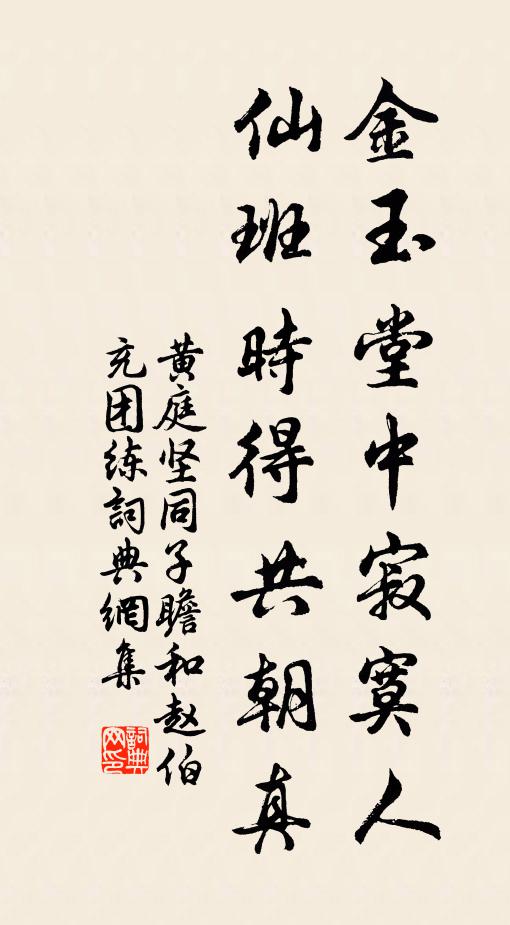 金玉堂中寂寞人
仙班時得共朝真
黄庭坚同子瞻和赵伯
充团练詞典網集
詞典网印